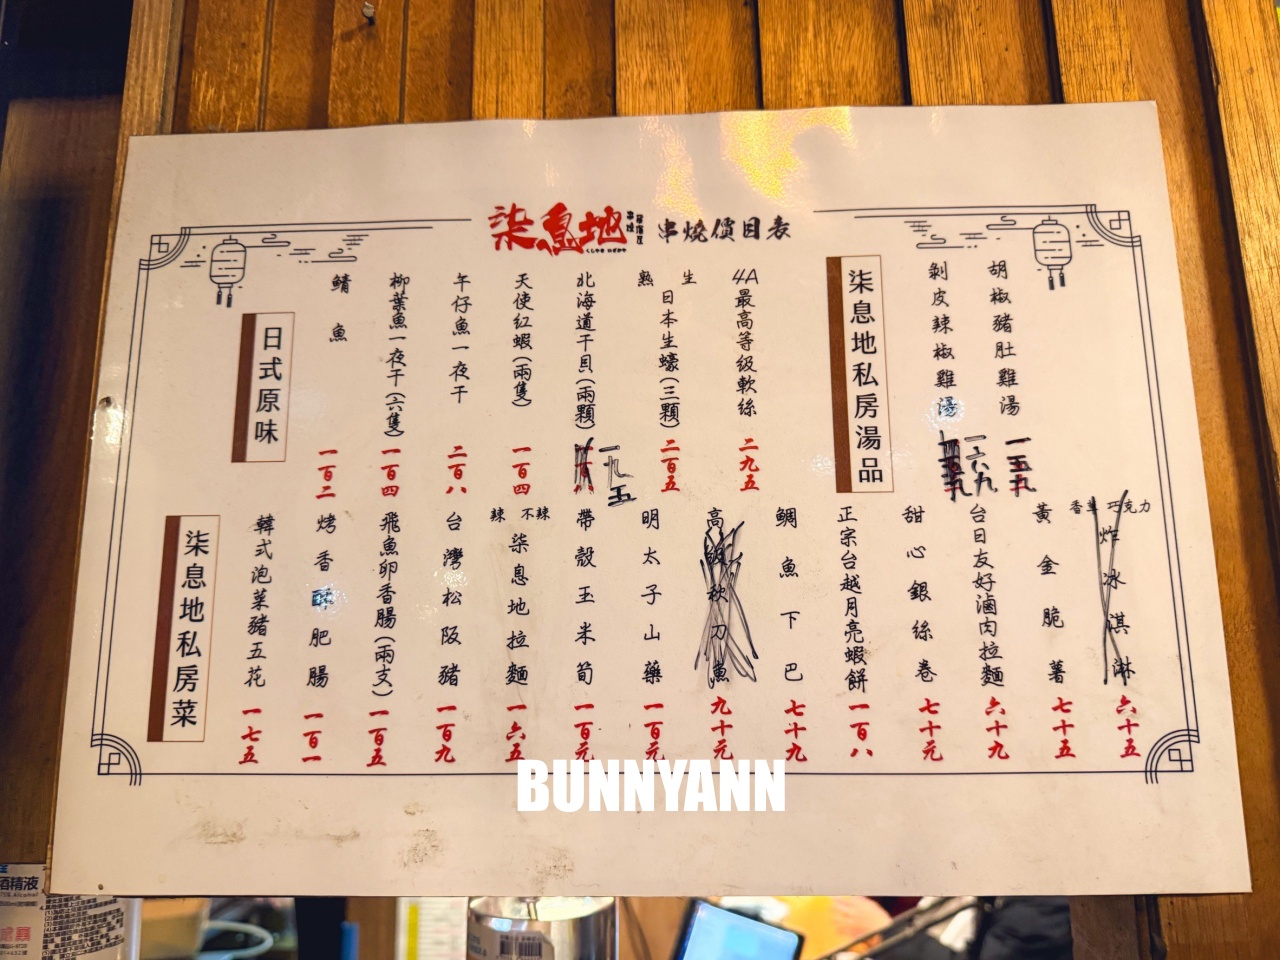 柒息地 串燒 居酒屋 串燒價目表
柒息地私房湯品
胡椒豬肚雞湯 一五九
剝皮辣椒雞湯 一六八九
日式原味
4A最高等級軟絲 二九五
生 熟 日本生蠔(三顆) 二百五
北海道干貝(兩顆) 一九五
天使紅蝦(兩隻) 一百四
午仔魚一夜干 二百八
柳葉魚一夜干(六隻) 一百四
鯖魚 一百二
柒息地私房菜
香草 巧克力 炸冰淇淋 六十五
黃金脆薯 七十五
台日友好滷肉拉麵 六十九
甜心銀絲卷 七十元
正宗台越月亮蝦餅 一百八
鯛魚下巴 七十九
高級秋刀魚 九十元
明太子山藥 一百元
帶殼玉米筍 一百元
不辣 辣 柒息地拉麵 一六五
台灣松阪豬 一百九
飛魚卵香腸(兩支) 一百五
烤香酥肥腸 一百一
韓式泡菜豬五花 一七五
BUNNYANN
酒精液